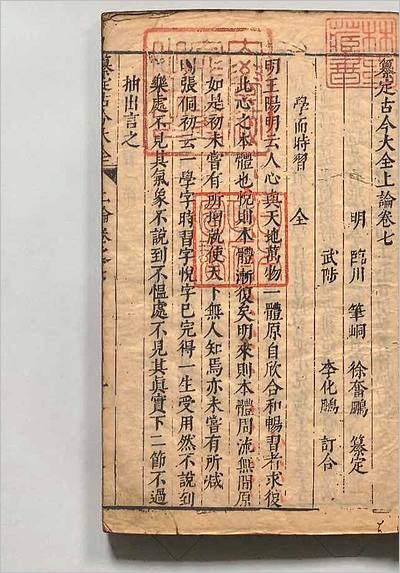 纂定古今大全上論卷七
明 臨川 筆峒 徐奮鵬 纂定
武陟 李化鵬 訂合
學而時習 全
明王陽明云人心與天地萬物一體原自欣合和暢習者求復
此心之本體也悅則本體漸復矣明來則本體周流無間原
如是初未嘗有所增就使天下無人知焉亦未嘗有所減
明張侗初云一學字時習字悅字已完得一生受用然不說到
樂處不見其氣象不說到不慍處不見其真實下二節不過
抽出言之
纂定古今大全
林氏藏書